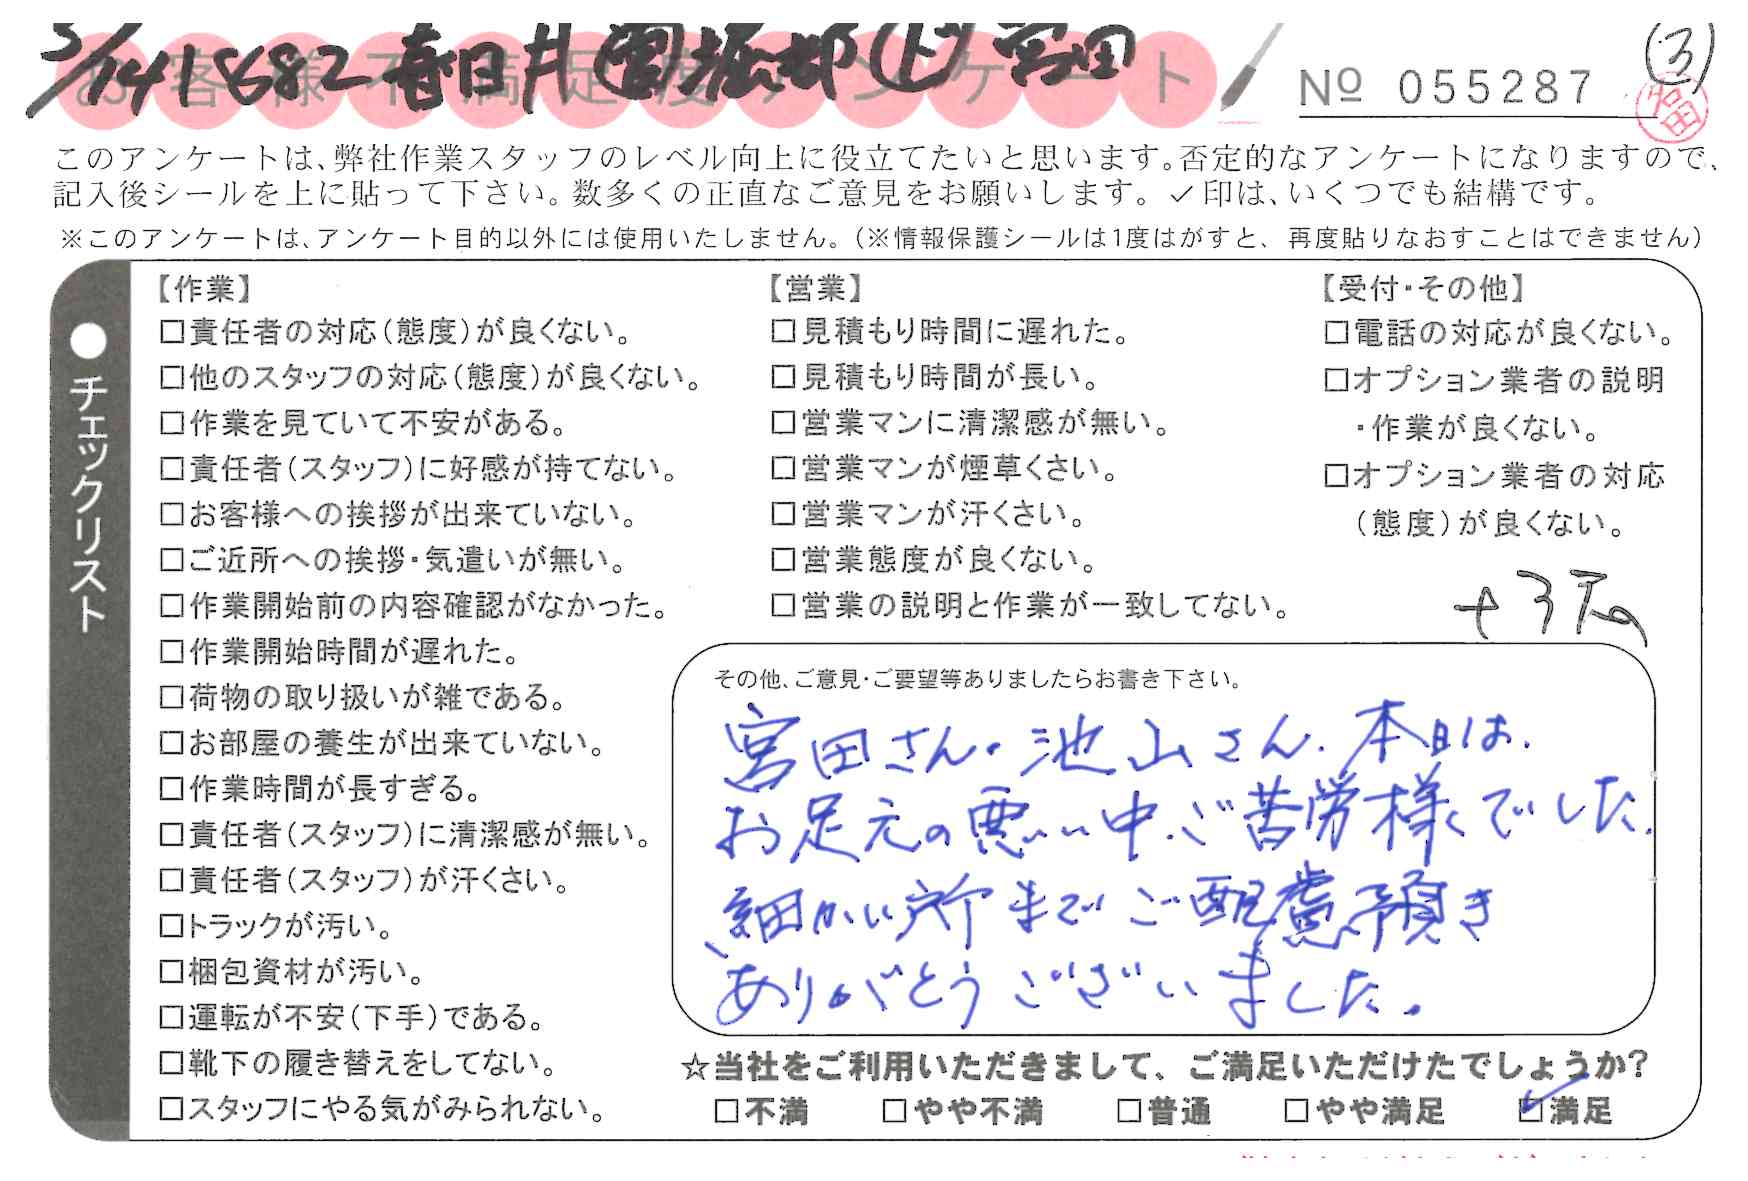 5/14 18682 春日井 宮田
お客様不満足度アンケート
№ 055287
(3)
このアンケートは、弊社作業スタッフのレベル向上に役立てたいと思います。否定的なアンケートになりますので、
記入後シールを上に貼って下さい。数多くの正直なご意見をお願いします。✓印は、いくつでも結構です。
※このアンケートは、アンケート目的以外には使用いたしません。（※情報保護シールは1度はがすと、再度貼りなおすことはできません）
●チェックリスト
【作業】
□責任者の対応（態度）が良くない。
□他のスタッフの対応（態度）が良くない。
□作業を見ていて不安がある。
□責任者（スタッフ）に好感が持てない。
□お客様への挨拶が出来ていない。
□ご近所への挨拶・気遣いが無い。
□作業開始前の内容確認がなかった。
□作業開始時間が遅れた。
□荷物の取り扱いが雑である。
□お部屋の養生が出来ていない。
□作業時間が長すぎる。
□責任者（スタッフ）に清潔感が無い。
□責任者（スタッフ）が汗くさい。
□トラックが汚い。
□梱包資材が汚い。
□運転が不安（下手）である。
□靴下の履き替えをしてない。
□スタッフにやる気がみられない。
【営業】
□見積もり時間に遅れた。
□見積もり時間が長い。
□営業マンに清潔感が無い。
□営業マンが煙草くさい。
□営業マンが汗くさい。
□営業態度が良くない。
□営業の説明と作業が一致してない。
【受付・その他】
□電話の対応が良くない。
□オプション業者の説明
・作業が良くない。
□オプション業者の対応
（態度）が良くない。
+3
その他、ご意見・ご要望等ありましたらお書き下さい。
宮田さん・池山さん、本日は、
お足元の悪い中、ご苦労様でした。
細かい所までご配慮頂き
ありがとうございました。
☆当社をご利用いただきまして、ご満足いただけたでしょうか?
□不満 □やや不満 □普通 □やや満足 ☑満足